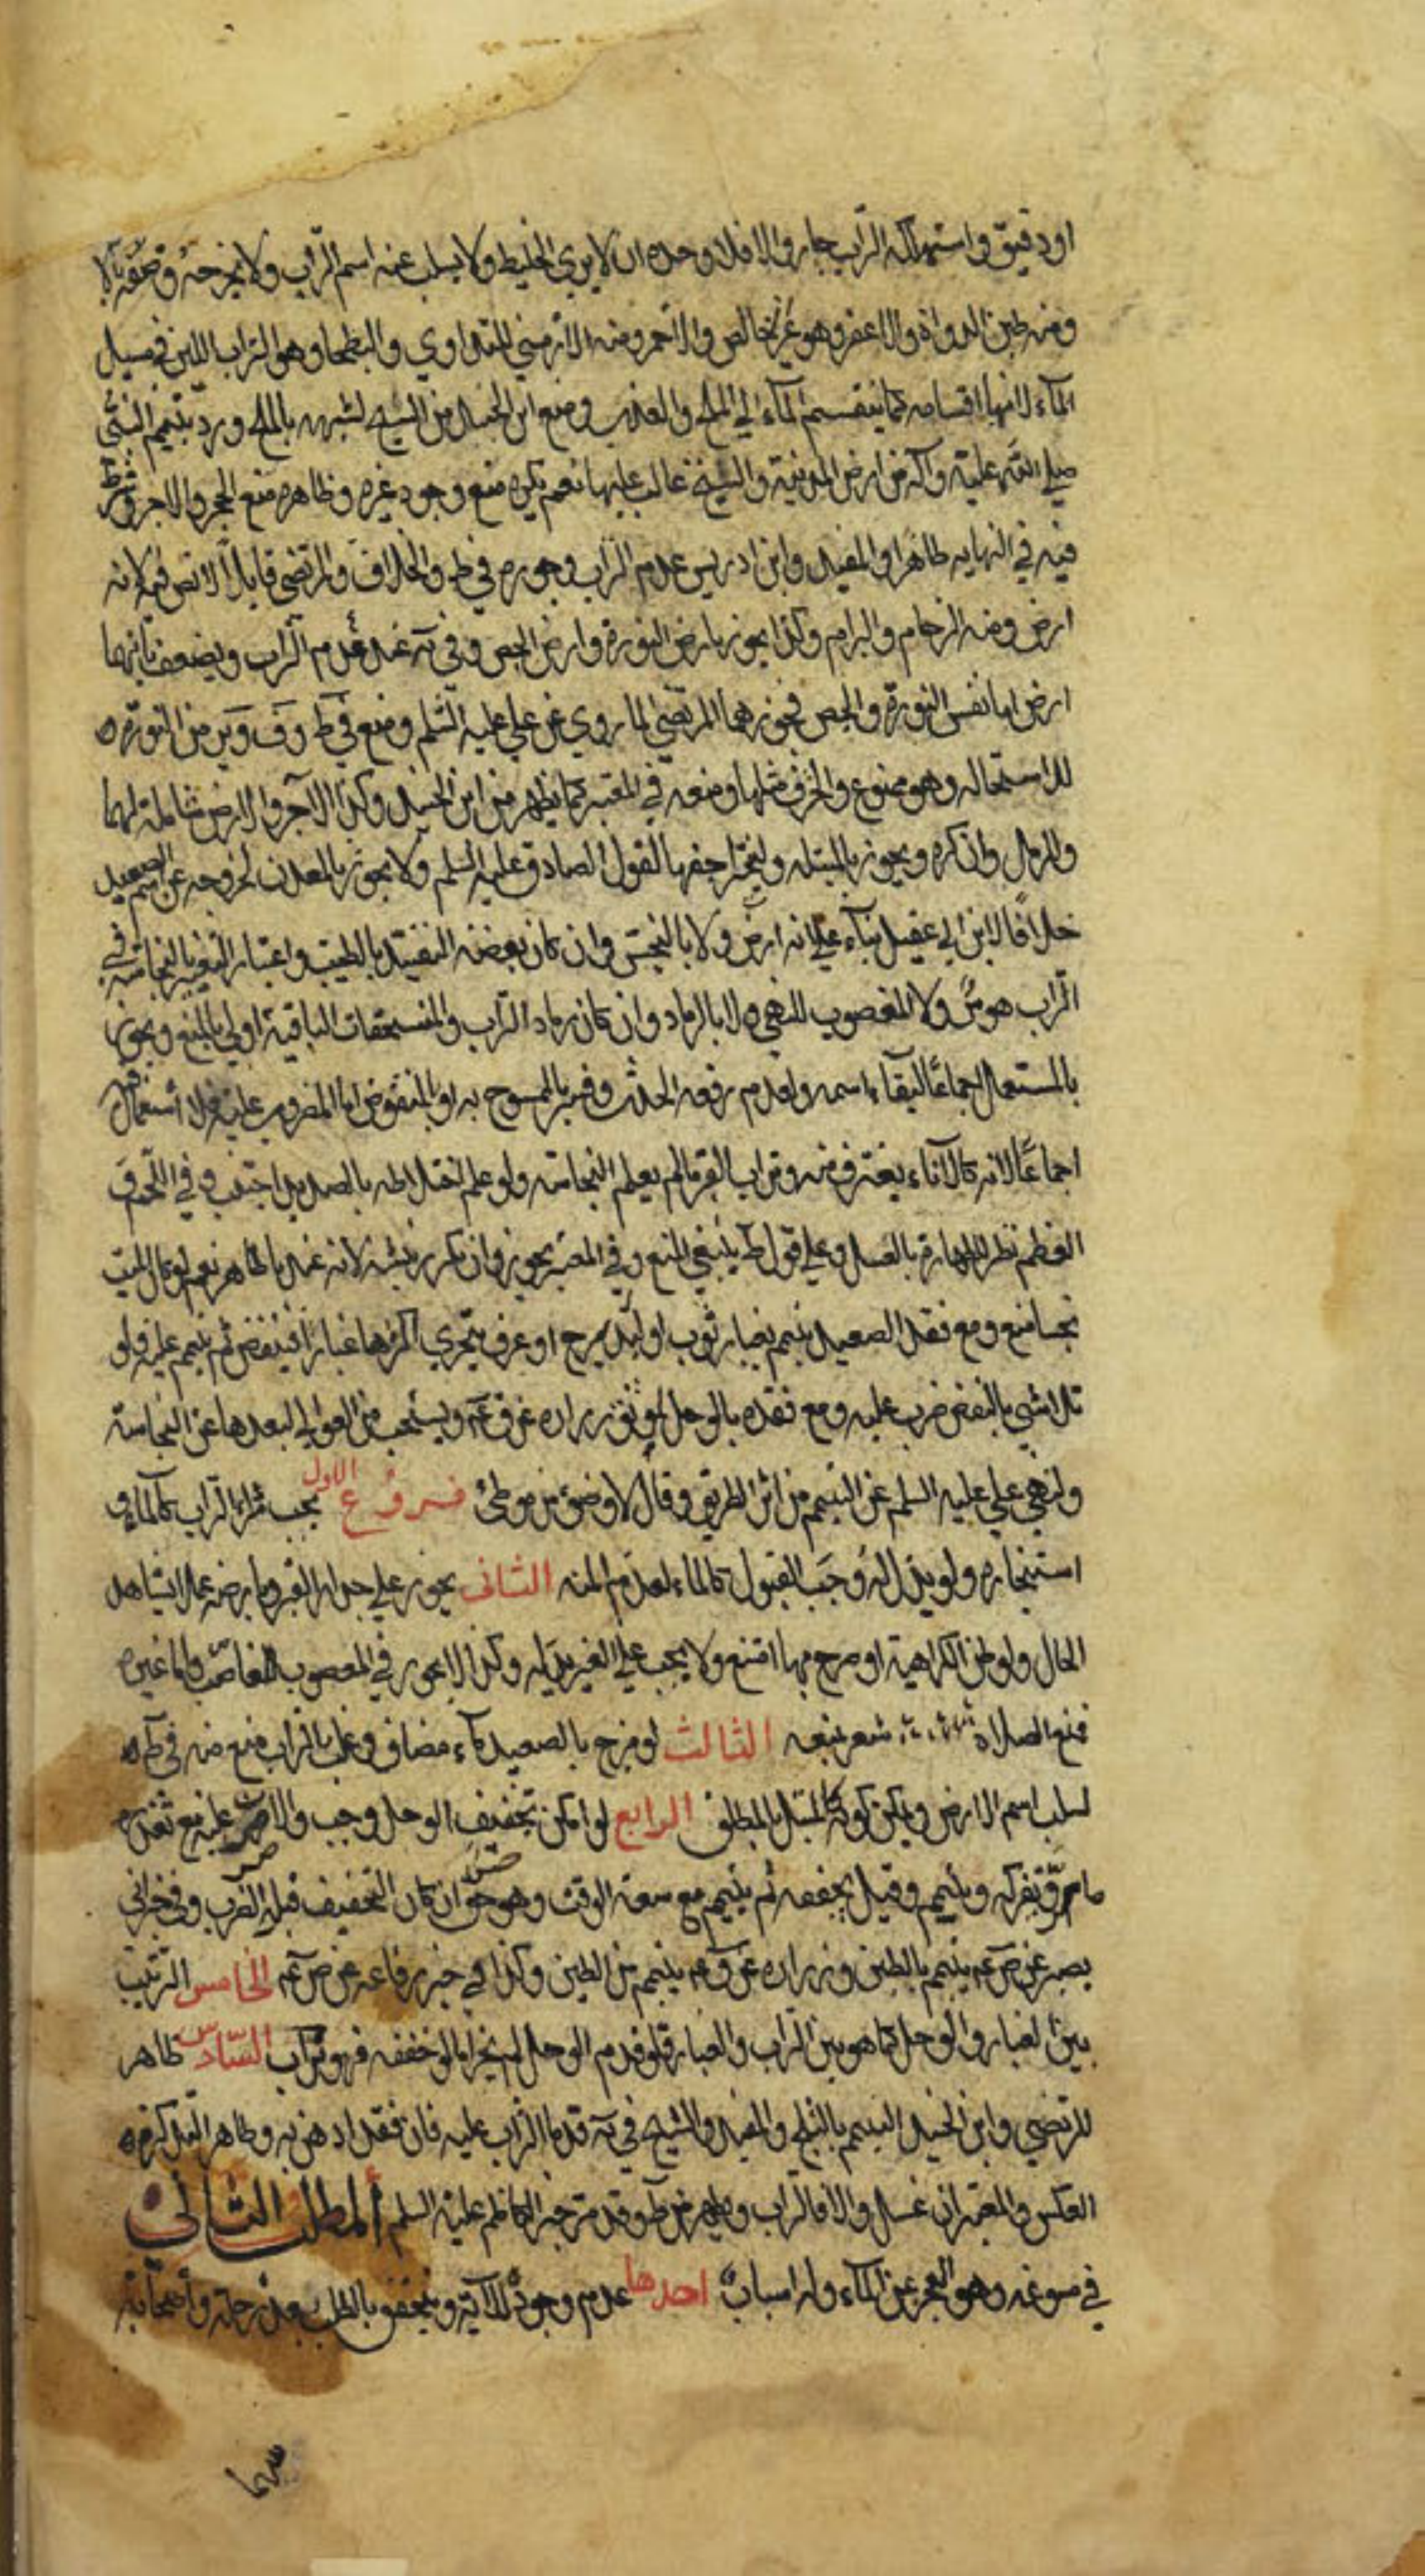 او دقيق واستهلكه التراب جاز والا فلا وحده ان لا يرى الخليط ولا يسلب عنه اسم التراب ولا يخرجه
ومنه طين الدواة والاعفر وهو غير خالص والاحمر ومنه الارمني للتداوي والبطحاء وهو التراب اللين في مسيل
الماء لانها اقسامه كما ينقسم الماء الى الملح والعذب ومنع ابن الجنيد من السبخ لشبهه بالملح ورد بتيمم النبي
صلى الله عليه وآله من ارض المدينة والسبخ غالب عليها نعم يكره منع وجود غيره وظاهره منع الحجر والاجر وشرط
فيه في النهايه ظاهرا والمفيد وابن ادريس عدم التراب وجوزه في ط والخلاف والمرتضى قائلا لا نص فيه لانه
ارض ومنه الرخام والبرام وكذا يجوز بارض النورة وارض الجص وفي يه عند عدم التراب ويضعف بانهما
ارض اما نفس النورة والجص فجوزهما المرتضى لما روي عن علي عليه السلم ومنع في ط وف وير من النورة
للاستحاله وهو ممنوع والخزف مثلها ومنعه في المعتبر كما يظهر من ابن الجنيد وكذا الآجر والارض شاملة لهما
والرمل وان كره ويجوز بالمبتله وليتخير اجفها لقول الصادق عليه السلم ولا يجوز بالمعدن لخروجه عن اسم الصعيد
خلافا لابن ابي عقيل بناء على انه ارض ولا بالنجس وان كان بعضه للتقييد بالطيب واعتبار التغير بالنجاسه في
التراب هوس ولا المغصوب للنهي ولا بالرماد وان كان رماد التراب والمنسحقات الباقية اولى بالمنع ويجوز
بالمستعمل اجماعا لبقاء اسمه ولعدم رفعه الحدث وفسر بالممسوح به او المنفوض اما المضروب عليه فلا استعمال فيه
اجماعا لانه كالاناء يغترف منه وتراب القبر ما لم يعلم النجاسة ولو علم اختلاطه بالصديد اجتنب وفي اللحم و
العظم نظر للطهارة بالغسل وعلى قول ط ينبغي المنع وفي المعتبر يجوز وان تكرر نبشه لانه عنده طاهر نعم لو كان الميت
نجسا منع ومع فقد الصعيد يتيمم بغبار ثوب او لبد سرج او عرف يتحرى اكثرها غبارا فينفض ثم يتيمم عليه ولو
تلاشى بالنفض ضرب عليه ومع فقده بالوحل لموثق زراره عن ق عم ويستحب من العوالي لبعدها عن النجاسة
ولنهي علي عليه السلم عن التيمم من اثر الطريق وقال لا وضوء من موطئ فروع الاول يجب شراء التراب كالماء و
استيجاره ولو بذل له وجب القبول كالماء لعدم المنه الثاني يجوز على جدار الغير وبارضه عملا بشاهد
الحال ولو ظن الكراهية او صرح بها امتنع ولا يجب على الغير بذله وكذا لا يجوز في المغصوب للغاصب واما غيره
فمنع الصلاة يشعر بمنعه الثالث لو مزج بالصعيد ماء مضاف وغلب التراب منع منه في ط
لسلب اسم الارض ويمكن كونه كالمبتل بالمطلق الرابع لو امكن تجفيف الوحل وجب والا ضرب عليه مع تعذره
ما مر ويفركه ويتيمم وقيل يجففه ثم يتيمم مع سعة الوقت وهو حق ان كان التجفيف قبل الضرب وفي خبر ابي
بصير عن ص عم يتيمم بالطين وزراره عن ق عم يتيمم من الطين وكذا في خبر رفاعه عن ص عم الخامس الترتيب
بين الغبار والوحل كما هو بين التراب والغبار فلو قدم الوحل لم يجز اما لو جففه فهو تراب السادس ظاهر
المرتضى وابن الجنيد التيمم بالثلج والمفيد والشيخ في يه قدما التراب عليه فان فقد ادهن به وظاهر التذكره
العكس والمعتبر ان غسل والا فالتراب ويظهر من ط وقد مر خبر الكاظم عليه السلم المطلب الثاني
في مسوغه وهو العجز عن الماء وله اسباب احدها عدم وجوده للاية ويتحقق بالطلب بعد رحله واصحابه
سهما